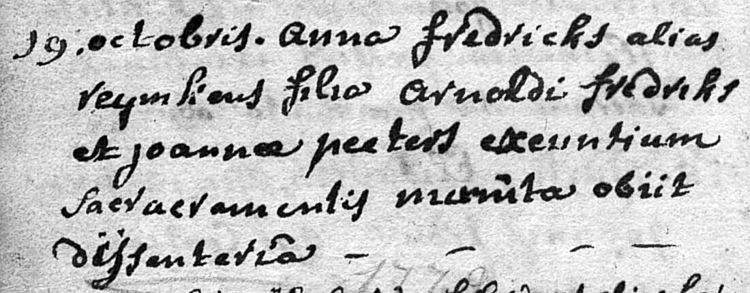 19. octobris. Anna fredrichs alias
reymkens filia Arnoldi fredrichs
et joannæ peeters exeuntium
sacracramentis munita obiit
dÿssenteria - - - -